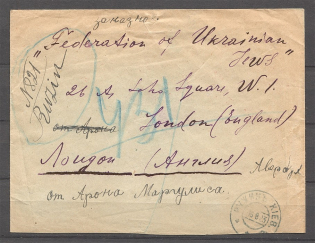 заказное
"Federation of Ukrainian
Jews"
26 A, Soho Square, W.1.
от Арона London (England)
Лондон (Англия)
от Арона Маргулиса.
№821
Ruzin
KIEV